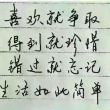 喜欢就争取
得到就珍惜
错过就忘记
生活如此简单